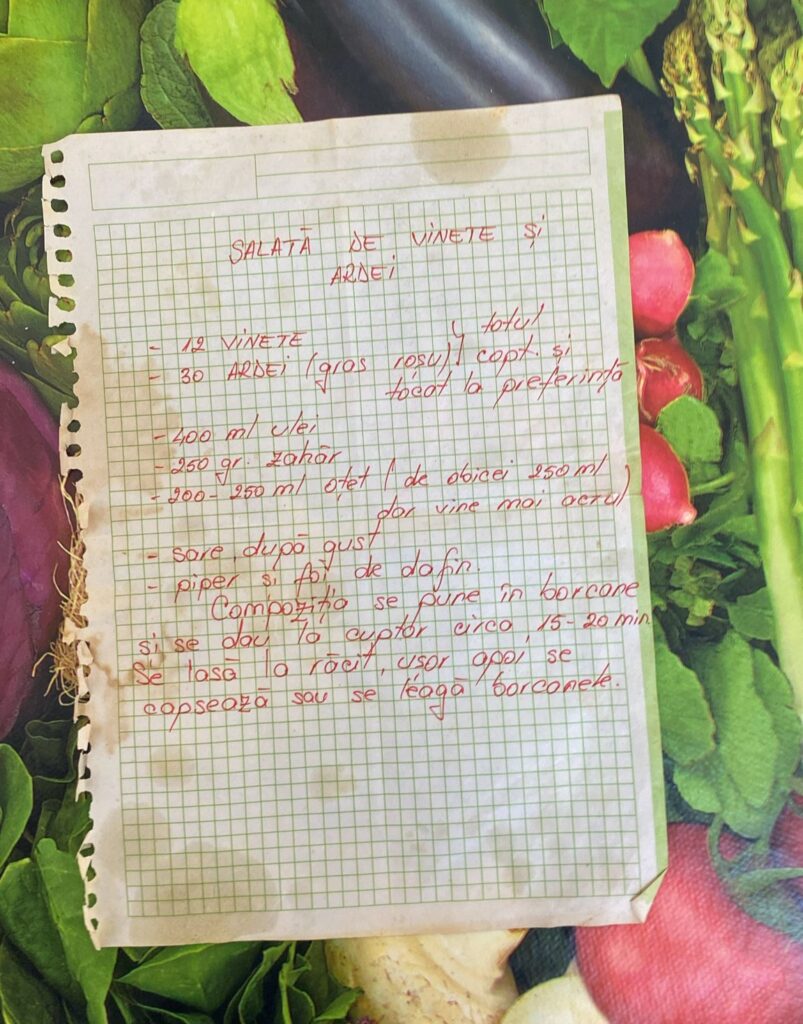 SALATĂ DE VINETE ȘI
ARDEI
- 12 VINETE
- 30 ARDEI (gras roșu) totul
copt și
tocat la preferință
- 400 ml ulei
- 250 gr. zahăr
- 200-250 ml oțet (de obicei 250 ml
dar vine mai acru)
- sare, după gust
- piper și foi de dafin.
Compoziția se pune în borcane
și se dau la cuptor circa 15-20 min
Se lasă la răcit, ușor apoi se
capsează sau se leagă borcanele.